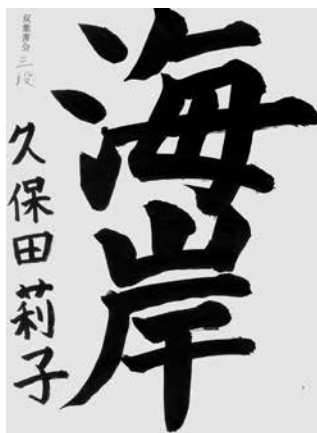 海岸
双葉書会
三段
久保田莉子